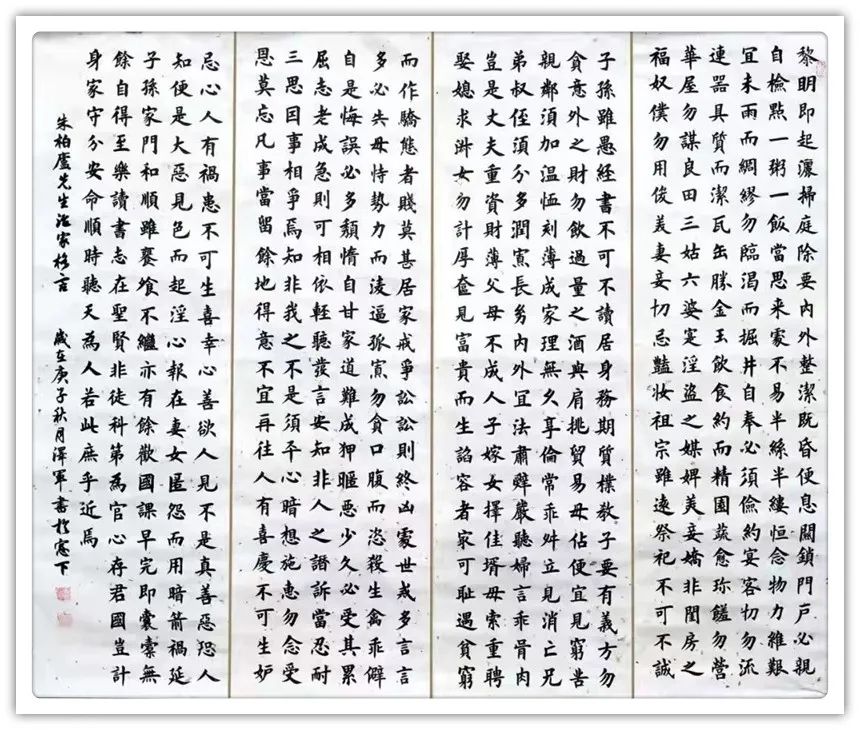 黎明即起灑掃庭除要內外整潔既昏便息關鎖門戶必親
自檢點一粥一飯當思来處不易半絲半縷恒念物力維艱
宜未雨而綢繆勿臨渴而掘井自奉必須儉約宴客切勿流
連器具質而潔瓦缶勝金玉飲食約而精園蔬愈珍饈勿營
華屋勿謀良田三姑六婆寔淫盗之媒婢美妾嬌非閨房之
福奴僕勿用俊美妻妾切忌豔妝祖宗雖遠祭祀不可不誠
子孫雖愚經書不可不讀居身務期質樸教子要有義方勿
貪意外之財勿飲過量之酒與肩挑貿易毋佔便宜見窮苦
親鄰須加温恤刻薄成家理無久享倫常乖舛立見消亡兄
弟叔侄須分多潤寡長幼內外宜法肅辭嚴聽婦言乖骨肉
豈是丈夫重資財薄父母不成人子嫁女擇佳壻毋索重聘
娶媳求淑女勿計厚奩見富貴而生諂容者冣可耻遇貧窮
而作驕態者賤莫甚居家戒爭訟訟則終凶處世戒多言言
多必失毋恃勢力而凌逼孤寡勿貪口腹而恣殺生禽乖僻
自是悔誤必多頹惰自甘家道難成狎暱惡少久必受其累
屈志老成急則可相依輕聽發言安知非人之譖訴當忍耐
三思因事相爭焉知非我之不是須平心暗想施惠勿念受
恩莫忘凡事當留餘地得意不宜再往人有喜慶不可生妒
忌心人有禍患不可生喜幸心善欲人見不是真善惡恐人
知便是大惡見色而起淫心報在妻女匿怨而用暗箭禍延
子孫家門和順雖饔飧不繼亦有餘歡國課早完即囊橐無
餘自得至樂讀書志在聖賢非徒科第為官心存君國豈計
身家守分安命順時聽天為人若此庶乎近焉
朱柏廬先生治家格言 歲在庚子秋月澤軍書於窓下